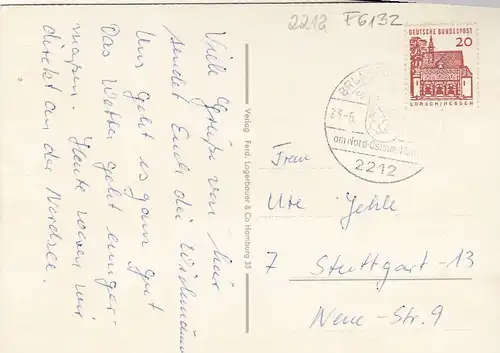 2212 F6132
DEUTSCHE BUNDESPOST
20
LORSCH/HESSEN
23.-6.
am Nord-Ostsee-Kanal
2212
Verlag Ferd. Lagerbauer & Co Hamburg 35
Viele Grüße von hier
sendet Euch die
Uns geht es ganz gut
Das Wetter geht einiger-
maßen. Heute waren wir
direkt an der Nordsee.
Ute Jehle
7 Stuttgart-13
Neue-Str. 9